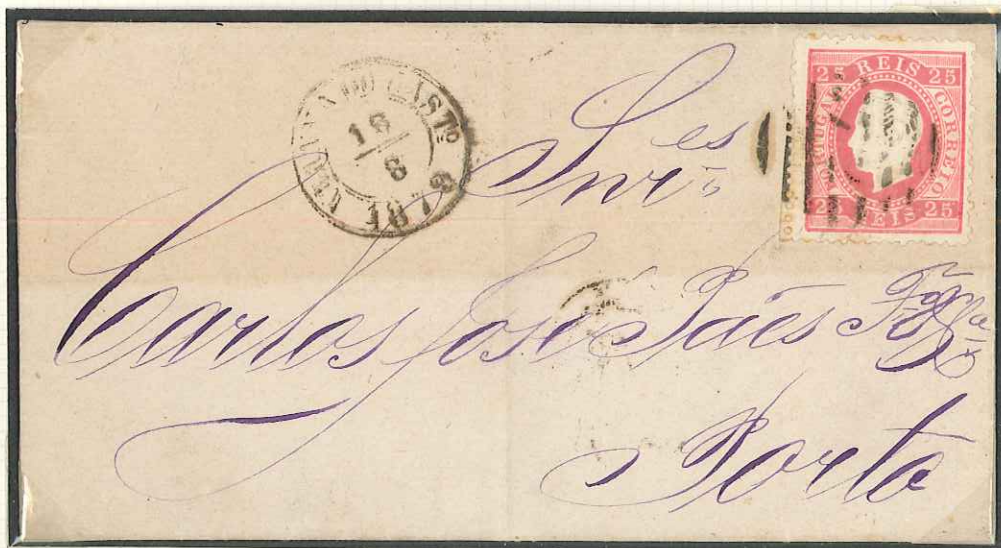 VIANNA DO CASTº
18
8
25 REIS 25
PORTUGAL
CORREIO
25 REIS 25
Snr.es
Carlos José Paes
Porto